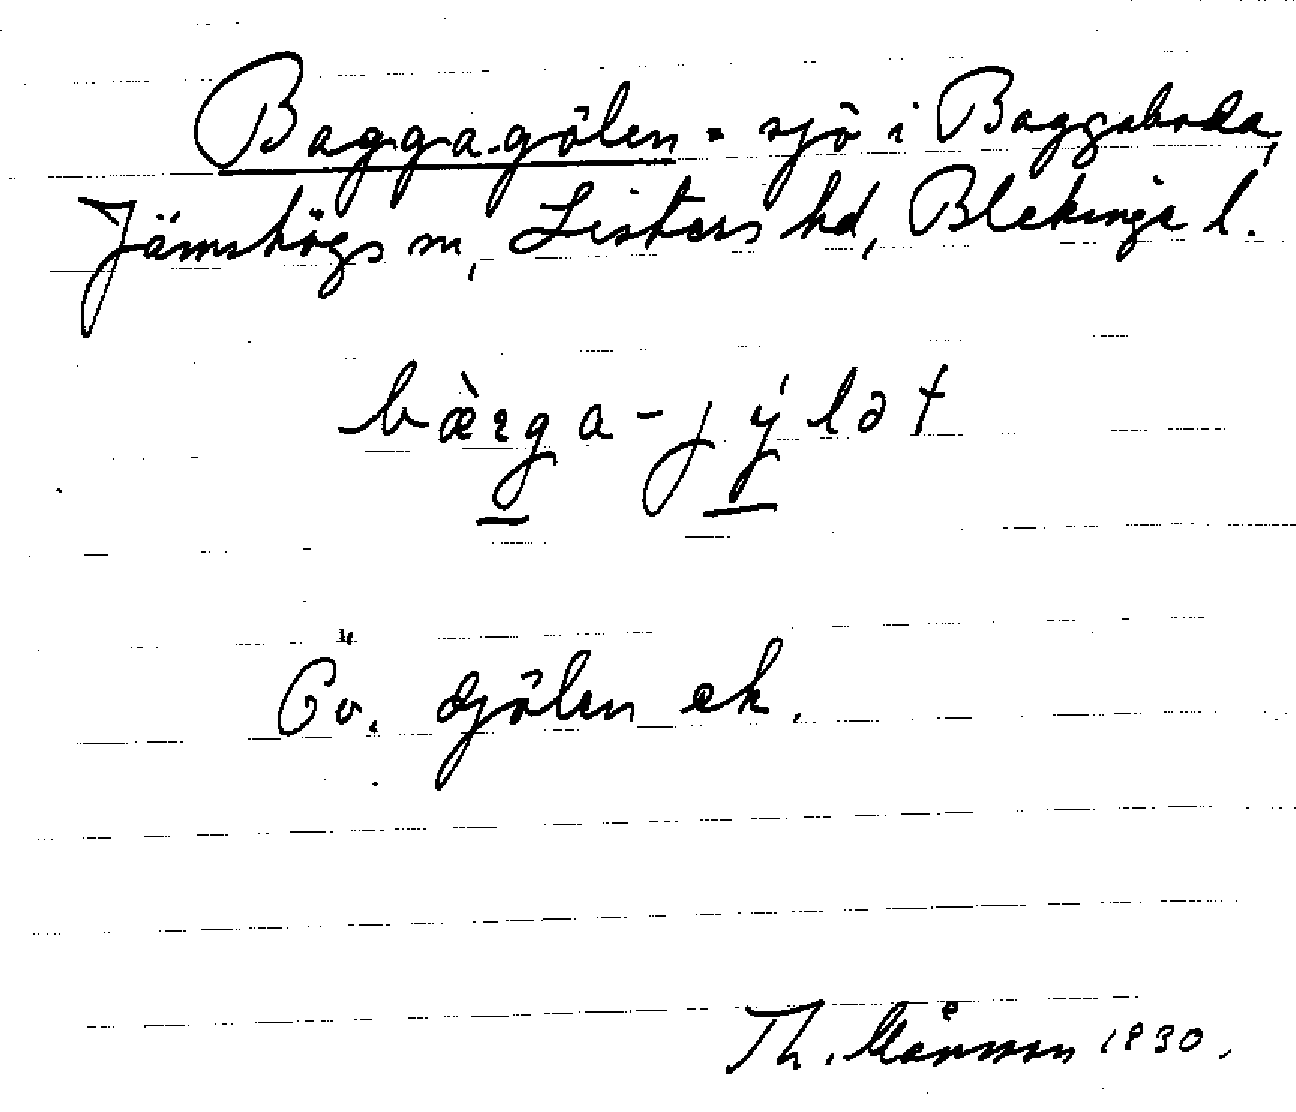 Bagga-gölen = sjö i Baggaboda,
Jämshögs sn, Listers hd, Blekinge l.
bæ̀rga-jýlət
Gö. djölen ek.
Th. Månsson 1930.